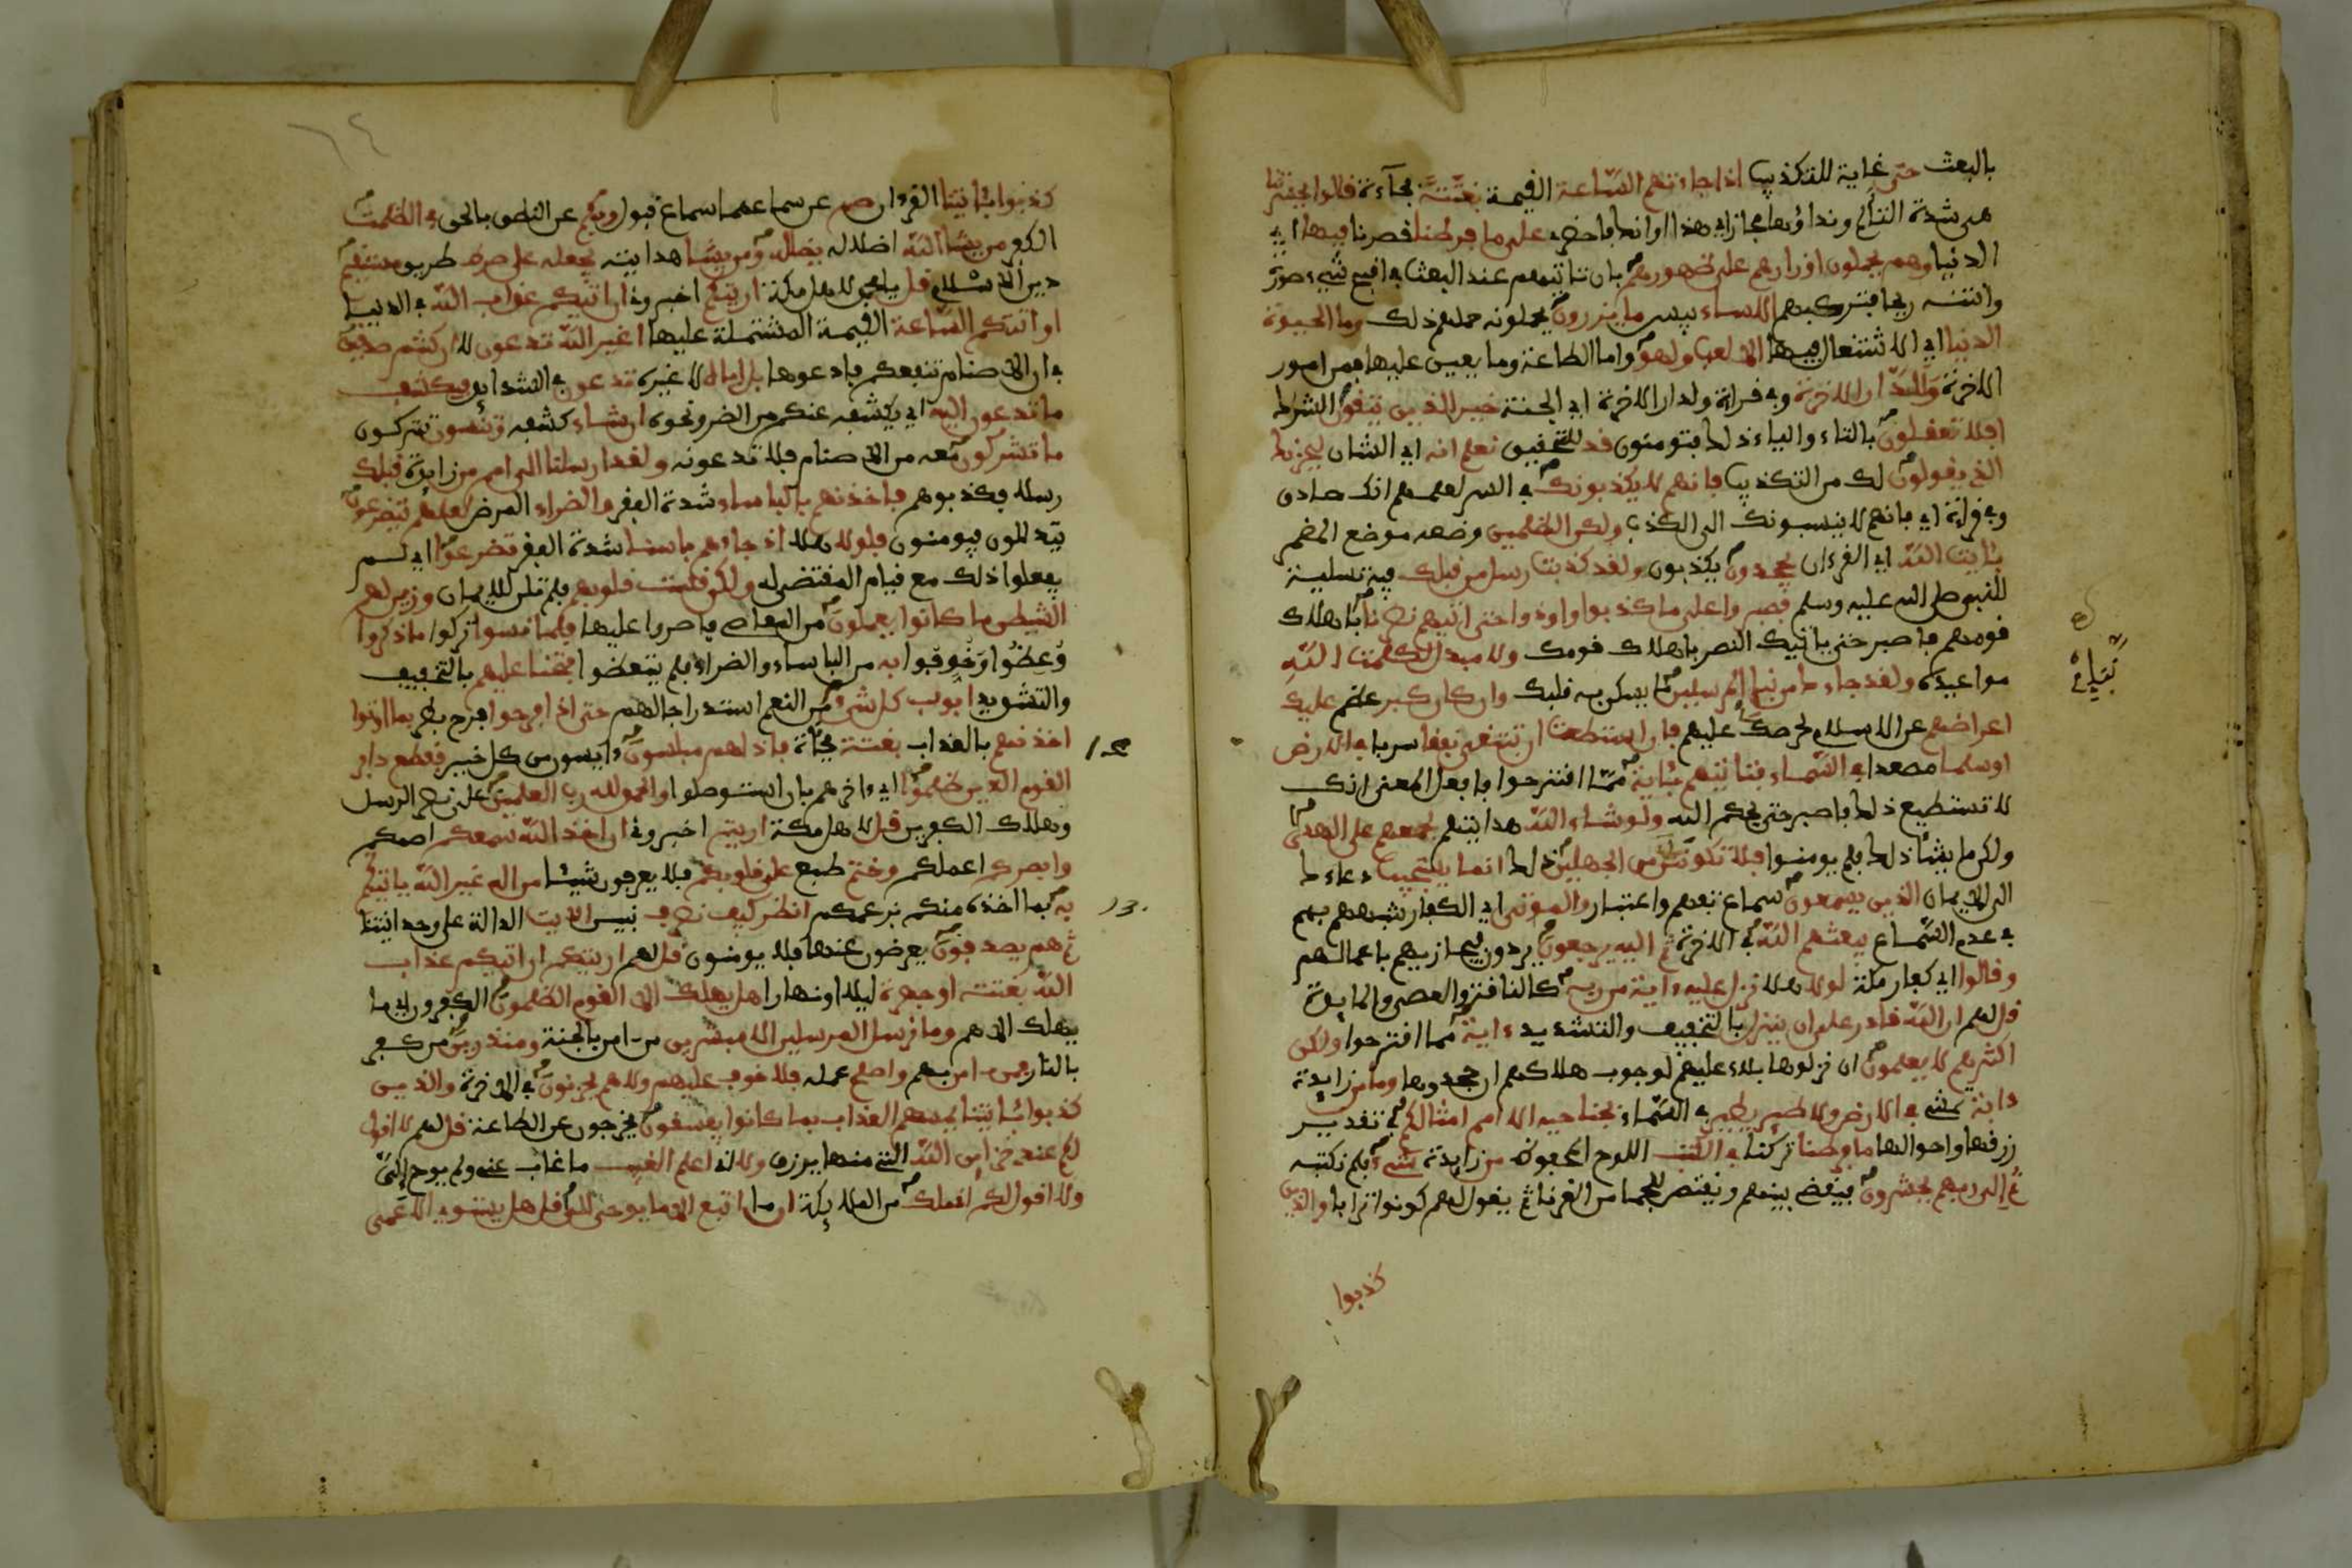 بالبعث حتى غاية للتكذيب اذا جاءتهم الساعة القيمة بغتة فجأة قالوا يحسرتنا
هى شدة التألم ونداؤها مجاز اى هذا اوانك فاحضرى على ما فرطنا قصرنا فيها اى
الدنيا وهم يحملون اوزارهم على ظهورهم بان تاتيهم عند البعث فى اقبح شىء صورة
وانتنه ريحا فتركبهم الا ساء بيس ما يزرون يحملونه حملهم ذلك وما الحيوة
الدنيا اى الاشتغال فيها الا لعب ولهو واما الطاعة وما يعين عليها فمن امور
الاخرة وللدار الاخرة وفى قراءة ولدار الاخرة اى الجنة خير للذين يتقون الشرك
افلا تعقلون بالتاء والياء ذلك فتومنون قد للتحقيق نعلم انه اى الشان ليحزنك
الذى يقولون لك من التكذيب فانهم لا يكذبونك فى السر لعلمهم انك صادق
وفى قراءة اى فانهم لا ينسبونك الى الكذب ولكن الظلمين وضعه موضع المضمر
بئايت الله اى القرءان يجحدون يكذبون ولقد كذبت رسل من قبلك فيه تسلية
للنبى صلى الله عليه وسلم فصبروا على ما كذبوا واوذوا حتى اتيهم نصرنا باهلاك
قومهم فاصبر حتى ياتيك النصر باهلاك قومك ولا مبدل لكلمت الله
مواعيده ولقد جاءك من نبإى المرسلين ما يسكن به قلبك وان كان كبر عظم عليك
اعراضهم عن الاسلام لحرصك عليهم فان استطعت ان تبتغى نفقا سربا فى الارض
او سلما مصعدا فى السماء فتاتيهم بئاية مما اقترحوا فافعل المعنى انك
لا تستطيع ذلك فاصبر حتى يحكم الله ولو شاء الله هدايتهم لجمعهم على الهدى
ولكن ما يشأ ذلك فلم يومنوا فلا تكونن من الجهلين ذلك انما يستجيب دعاءك
الى الايمان الذين يسمعون سماع تفهم واعتبار والموتى اى الكفار شبههم بهم
فى عدم السماع يبعثهم الله فى الاخرة ثم اليه يرجعون يردون فيجازيهم باعمالهم
وقالوا اى كفار مكة لولا هلا نزل عليه ءاية من ربه كالناقة والعصى والمايدة
قل لهم ان الله قادر على ان ينزل بالتخفيف والتشديد ءاية مما اقترحوا ولكن
اكثرهم لا يعلمون ان نزولها بلاء عليهم لوجوب هلاكهم ان جحدوها وما من زايدة
دابة تمشى فى الارض ولا طير يطير فى السماء بجناحيه الا امم امثالكم فى تقدير
رزقها واحوالها ما فرطنا تركنا فى الكتب اللوح المحفوظ من زايدة شىء فلم نكتبه
ثم الى ربهم يحشرون فيقضى بينهم ويقتص للجما من القرنا ثم يقول لهم كونوا ترابا والذين
كذبوا
كذبوا بئايتنا القرءان صم عن سماعها سماع قبول وبكم عن النطق بالحق فى الظلمت
الكفر من يشا الله اضلاله يضلله ومن يشا هدايته يجعله على صرط طريق مستقيم
دين الاسلام قل يا محمد لاهل مكة اريتكم اخبرونى ان اتيكم عذاب الله فى الدنيا
او اتتكم الساعة القيمة المشتملة عليها اغير الله تدعون لا ان كنتم صدقين
فى ان الاصنام تنفعكم فادعوها بل اياه لا غيره تدعون فى الشدايد فيكشف
ما تدعون اليه اى يكشفه عنكم من الضر ونحوه ان شاء كشفه وتنسون تتركون
ما تشركون معه من الاصنام فلا تدعونه ولقد ارسلنا الى امم من زايدة قبلك
رسلا فكذبوهم فاخذنهم بالباساء شدة الفقر والضراء المرض لعلهم يتضرعون
يتذللون فيومنون فلولا هلا اذ جاءهم باسنا شدة الفقر تضرعوا اى لم
يفعلوا ذلك مع قيام المقتضى له ولكن قست قلوبهم فلم تلن للايمان وزين لهم
الشيطن ما كانوا يعملون من المعاصى فاصروا عليها فلما نسوا تركوا ما ذكروا
وعظوا وخوفوا به من الباساء والضراء فلم يتعظوا فتحنا عليهم بالتخفيف
والتشديد ابوب كل شىء من النعم استدراجا لهم حتى اذا فرحوا فرح بطر بما اوتوا
اخذنهم بالعذاب بغتة فجأة فاذا هم مبلسون ءايسون من كل خير فقطع دابر
القوم الذين ظلموا اى ءاخرهم بان استوصلوا والحمد لله رب العلمين على نصر الرسل
وهلاك الكفرين قل لاهل مكة اريتم اخبرونى ان اخذ الله سمعكم اصمكم
وابصركم اعملكم وختم طبع على قلوبكم فلا يعرفون شيئا من اله غير الله ياتيكم
به بما اخذه منكم بزعمكم انظر كيف نصرف نبين الايت الدالة على وحدانيتنا
ثم هم يصدفون يعرضون عنها فلا يومنون قل لهم اريتكم ان اتيكم عذاب
الله بغتة او جهرة ليلا او نهارا هل يهلك الا القوم الظلمون الكفرون اى ما
يهلك الا هم وما نرسل المرسلين الا مبشرين من ءامن بالجنة ومنذرين من كفر
بالنار فمن ءامن بهم واصلح عمله فلا خوف عليهم ولا هم يحزنون فى الاخرة والذين
كذبوا بئايتنا يمسهم العذاب بما كانوا يفسقون يخرجون عن الطاعة قل لهم لا اقول
لكم عندى خزاين الله التى منها يرزق ولا انى اعلم الغيب ما غاب عنى ولم يوح الى
ولا اقول لكم انى ملك من الملايكة ان ما اتبع الا ما يوحى الى قل هل يستوى الاعمى